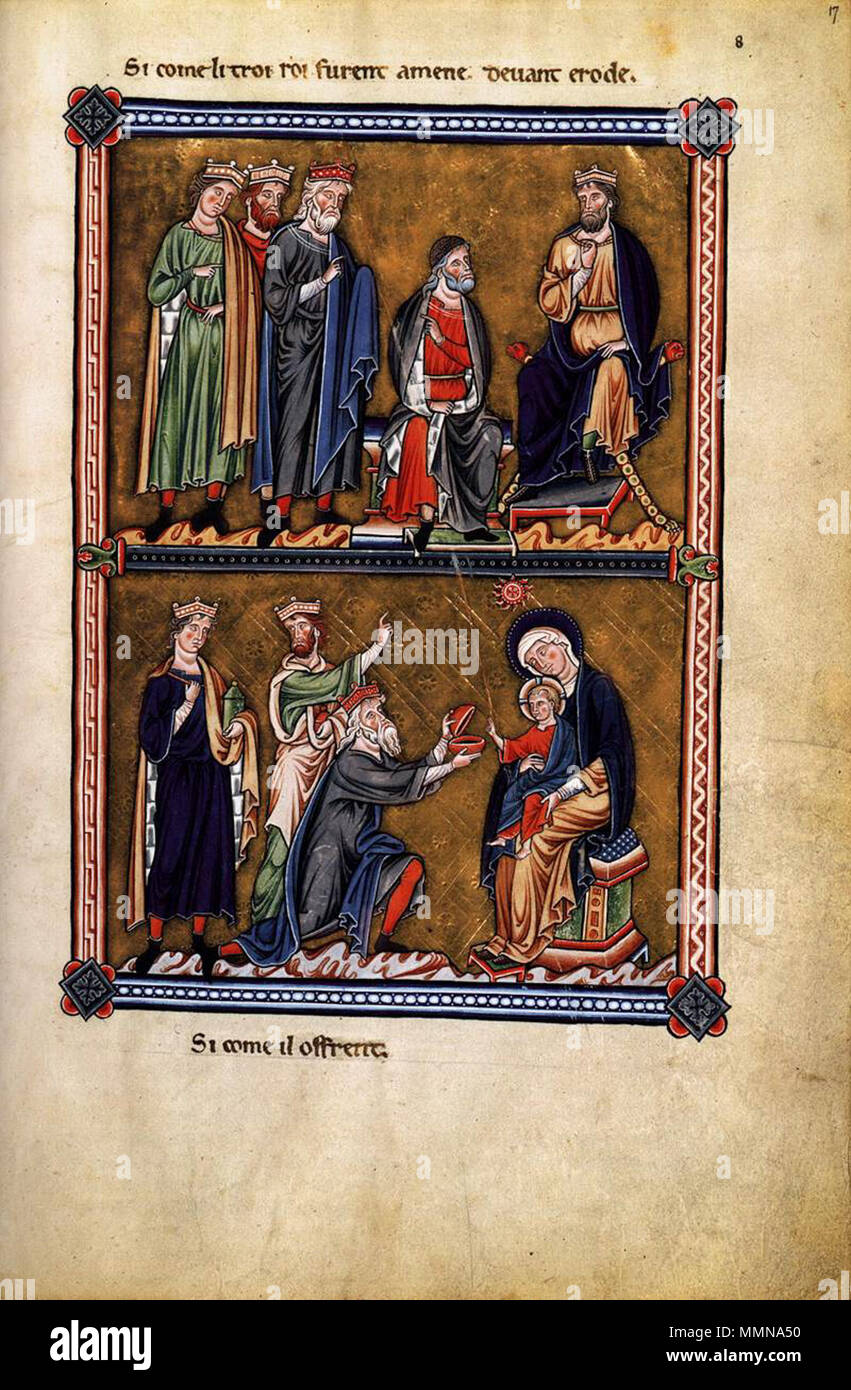 17
8
Si come li troi roi furent amene. devant erode.
Si come il offrent.
alamy
Image ID: MMNA50
www.alamy.com